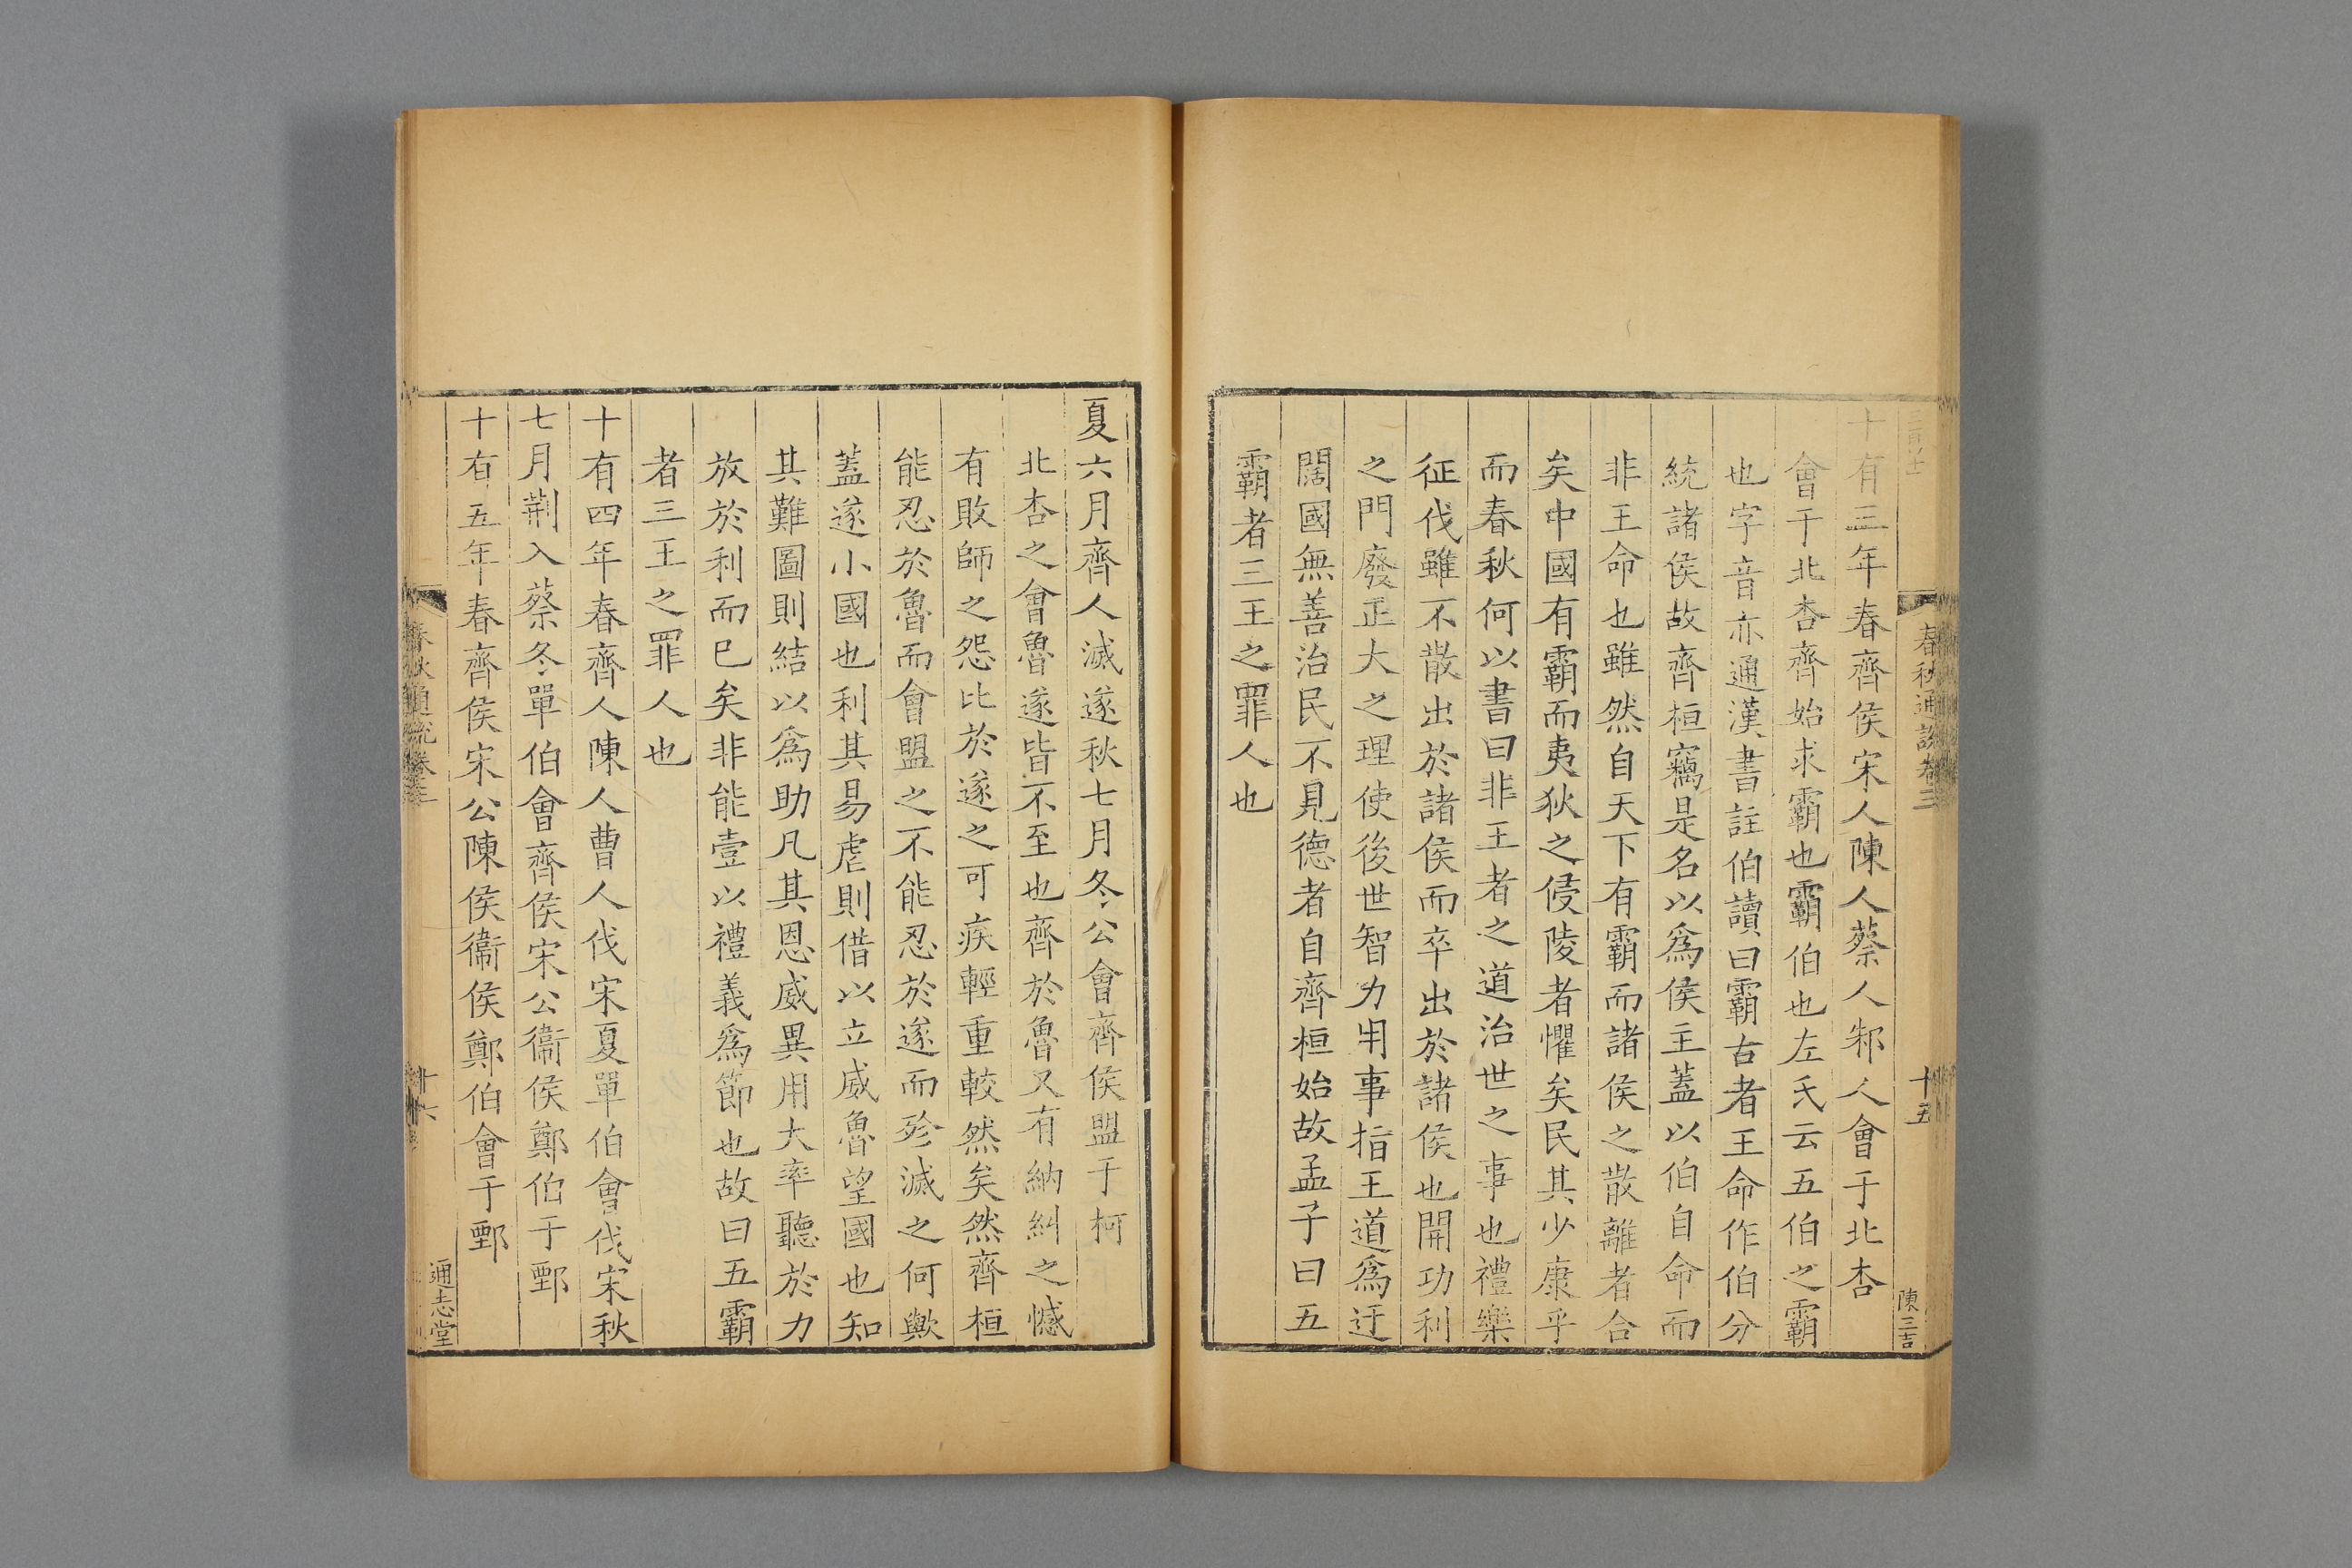 春秋通說卷三
十五
陳三吉
十有三年春齊侯宋人陳人蔡人邾人會于北杏
會于北杏齊始求霸也霸伯也左氏云五伯之霸
也字音亦通漢書註伯讀曰霸古者王命作伯分
統諸侯故齊桓竊是名以爲侯主蓋以伯自命而
非王命也雖然自天下有霸而諸侯之散離者合
矣中國有霸而夷狄之侵陵者懼矣民其少康乎
而春秋何以書曰非王者之道治世之事也禮樂
征伐雖不散出於諸侯而卒出於諸侯也開功利
之門廢正大之理使後世智力用事指王道爲迂
闊國無善治民不見德者自齊桓始故孟子曰五
霸者三王之罪人也
夏六月齊人滅遂秋七月冬公會齊侯盟于柯
北杏之會魯遂皆不至也齊於魯又有納糾之憾
有敗師之怨比於遂之可疾輕重較然矣然齊桓
能忍於魯而會盟之不能忍於遂而殄滅之何歟
蓋遂小國也利其易虐則借以立威魯望國也知
其難圖則結以爲助凡其恩威異用大率聽於力
放於利而巳矣非能壹以禮義爲節也故曰五霸
者三王之罪人也
十有四年春齊人陳人曹人伐宋夏單伯會伐宋秋
七月荆入蔡冬單伯會齊侯宋公衞侯鄭伯于鄄
十有五年春齊侯宋公陳侯衞侯鄭伯會于鄄
春秋通說卷三
十六
通志堂